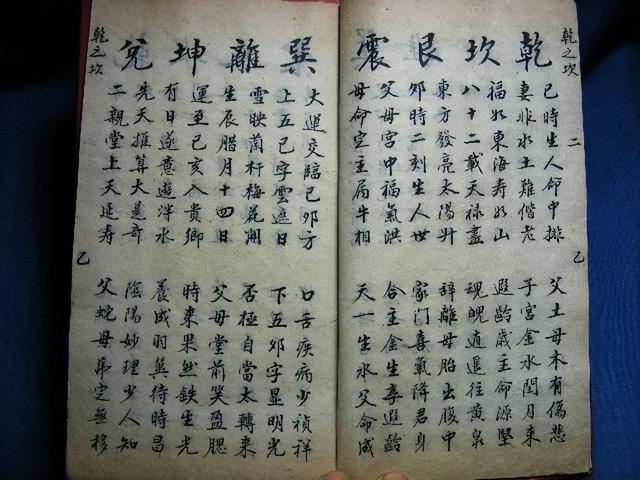 乾之坎
二
乙
乾坎艮震
巳時生人命中排
父土母木有傷悲
妻非水土難偕老
子宮金水閏月來
福如東海壽如山
遐齡歲主命源堅
八十二載天祿盡
魂魄逍遙往黃泉
東方發亮太陽升
辭離母胎出腹中
卯時二刻生人世
家門喜氣降君身
父母宮中福氣洪
合主金生享遐齡
母命定主属牛相
天一生水父命成
巽離坤兌
大運交臨巳卯方
口舌疾病少禎祥
上五巳字雲遮日
下五卯字显明光
雪映蘭杆梅花開
否極自當太轉來
生辰腊月十四日
父母堂前笑盈腮
運至巳亥入貴鄉
時來果然鉄生光
有日遂意遊泮水
養成羽翼待時昌
先天推算大是奇
陰陽妙理少人知
二親堂上天延壽
父蛇母虎定無移
乾之坎
乙